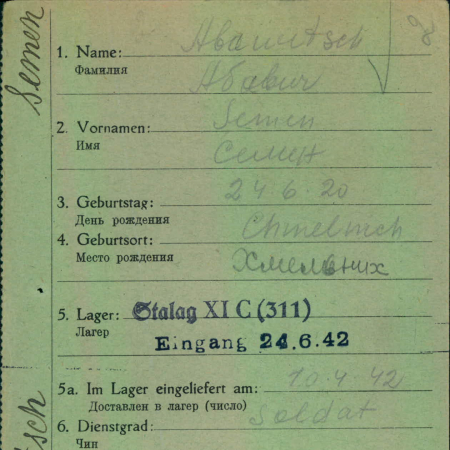 Semen
1. Name:
Фамилия
2. Vornamen: Semen
Имя Семен
3. Geburtstag: 24 6. 20
День рождения
4. Geburtsort: Chmelnich
Место рождения Хмельних
5. Lager: Stalag XI C (311)
Лагер
Eingang 24.6.42
5a. Im Lager eingeliefert am: 10. 4. 42
Доставлен в лагер (число)
6. Dienstgrad: Soldat
Чин